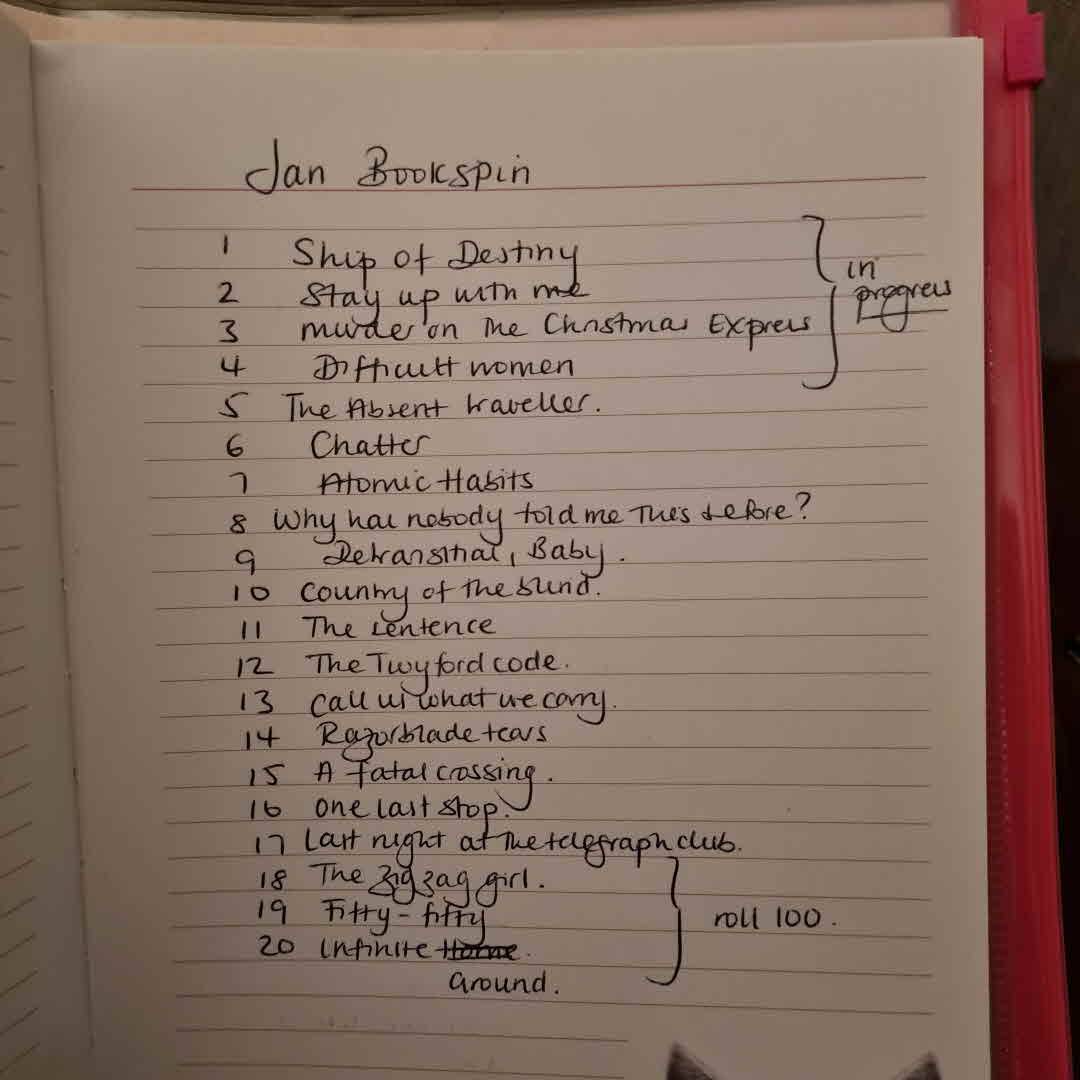 Jan Bookspin
1 Ship of Destiny
2 Stay up with me
in
progress
3 murder on the Christmas Express
4 Difficult women
5 The Absent traveller.
6 Chatter
7 Atomic Habits
8 Why has nobody told me this before?
9 Detransition, Baby.
10 Country of the blind.
11 The sentence
12 The Twyford code.
13 Call us what we carry.
14 Razorblade tears
15 A fatal crossing.
16 One last stop.
17 Last night at the telegraph club.
18 The zig zag girl.
19 Fifty-fifty
roll 100.
20 Infinite Home.
Ground.